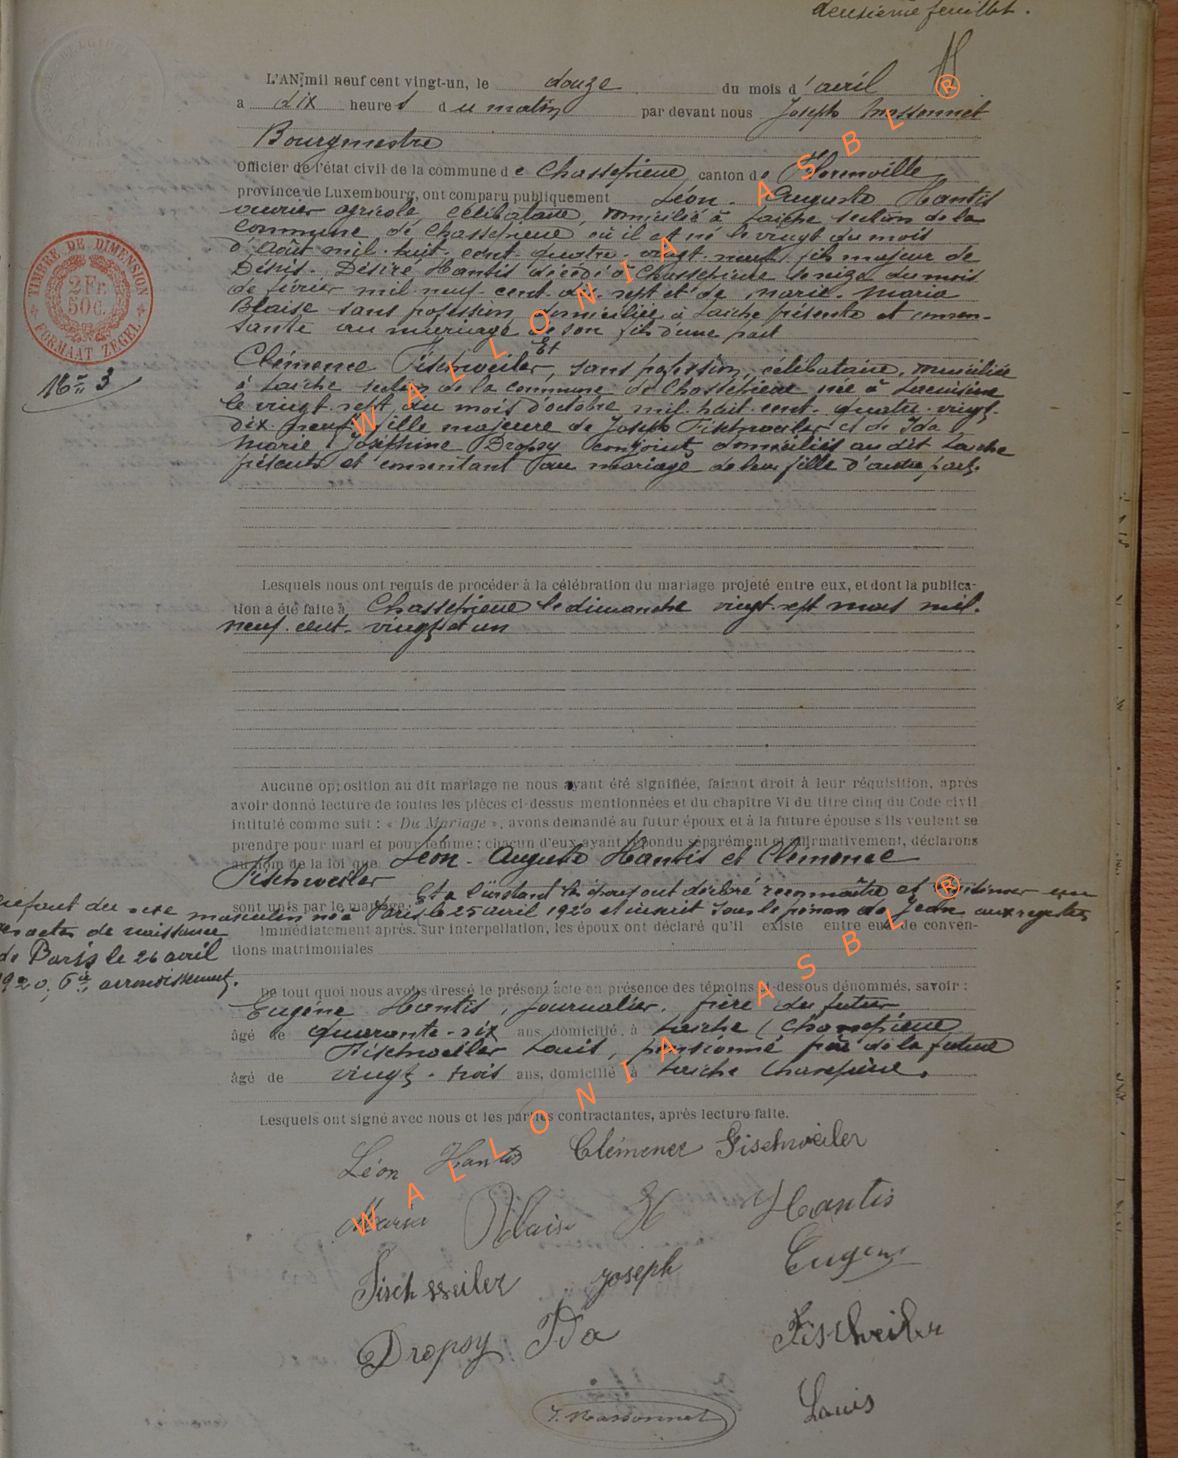 deuxième feuillet.
L'AN mil neuf cent vingt-un, le douze du mois d'avril
a dix heures du matin par devant nous Joseph Massonnet
Bourgmestre
Officier de l'état civil de la commune de Chassepierre canton de Florenville
province de Luxembourg, ont comparu publiquement Léon-Auguste Hantis
ouvrier agricole, célibataire, domicilié à Laiche section de la
commune de Chassepierre où il est né le vingt du mois
d'Août mil huit cent quatre vingt neuf fils majeur de
Denis-Désiré Hantis décédé à Chassepierre le seize du mois
de février mil neuf cent dix sept et de Marie-Maria
Blaise sans profession domiciliée à Laiche présente et consen-
tante au mariage de son fils d'une part
Et
Clémence Fischweiler, sans profession, célibataire, domiciliée
à Laiche section de la commune de Chassepierre née à
le vingt sept du mois d'octobre mil huit cent quatre vingt
dix neuf fille majeure de Joseph Fischweiler et de Ida
Marie Joséphine Dropsy conjoints domiciliés au dit Laiche
présents et consentant au mariage de leur fille d'autre part.
TIMBRE DE DIMENSION
2 Fr.
50 c.
FORMAAT ZEGEL
N° 3
Lesquels nous ont requis de procéder à la célébration du mariage projeté entre eux, et dont la publica-
tion a été faite à Chassepierre le dimanche vingt sept mars mil
neuf cent vingt et un
Aucune opposition au dit mariage ne nous ayant été signifiée, faisant droit à leur réquisition, après
avoir donné lecture de toutes les pièces ci-dessus mentionnées et du chapitre VI du titre cinq du Code civil
intitulé comme suit : « Du Mariage », avons demandé au futur époux et à la future épouse s'ils veulent se
prendre pour mari et pour femme ; chacun d'eux ayant répondu séparément et affirmativement, déclarons
au nom de la loi que Léon-Auguste Hantis et Clémence
Fischweiler
sont unis par le mariage. Et à l'instant les époux ont déclaré reconnaître et légitimer un
enfant du sexe masculin né à Paris le 25 avril 1920 et inscrit sous le prénom de Jean aux registres
des actes de naissance
de Paris le 26 avril
1920, 6e arrondissement.
Immédiatement après, sur interpellation, les époux ont déclaré qu'il existe entre eux de conven-
tions matrimoniales
De tout quoi nous avons dressé le présent acte en présence des témoins ci-dessous dénommés, savoir :
Eugène Hantis, journalier, frère du futur
âgé de quarante-six ans, domicilié à Laiche (Chassepierre
Fischweiler Louis, pensionné frère de la future
âgé de vingt-trois ans, domicilié à Laiche Chassepierre.
Lesquels ont signé avec nous et les parties contractantes, après lecture faite.
Léon Hantis Clémence Fischweiler
Maria Blaise H Hantis
Eugène
Fischweiler Joseph
Dropsy Ida Fischweiler
Louis
J. Massonnet
WALLONIA ASBL ®
WALLONIA ASBL ®